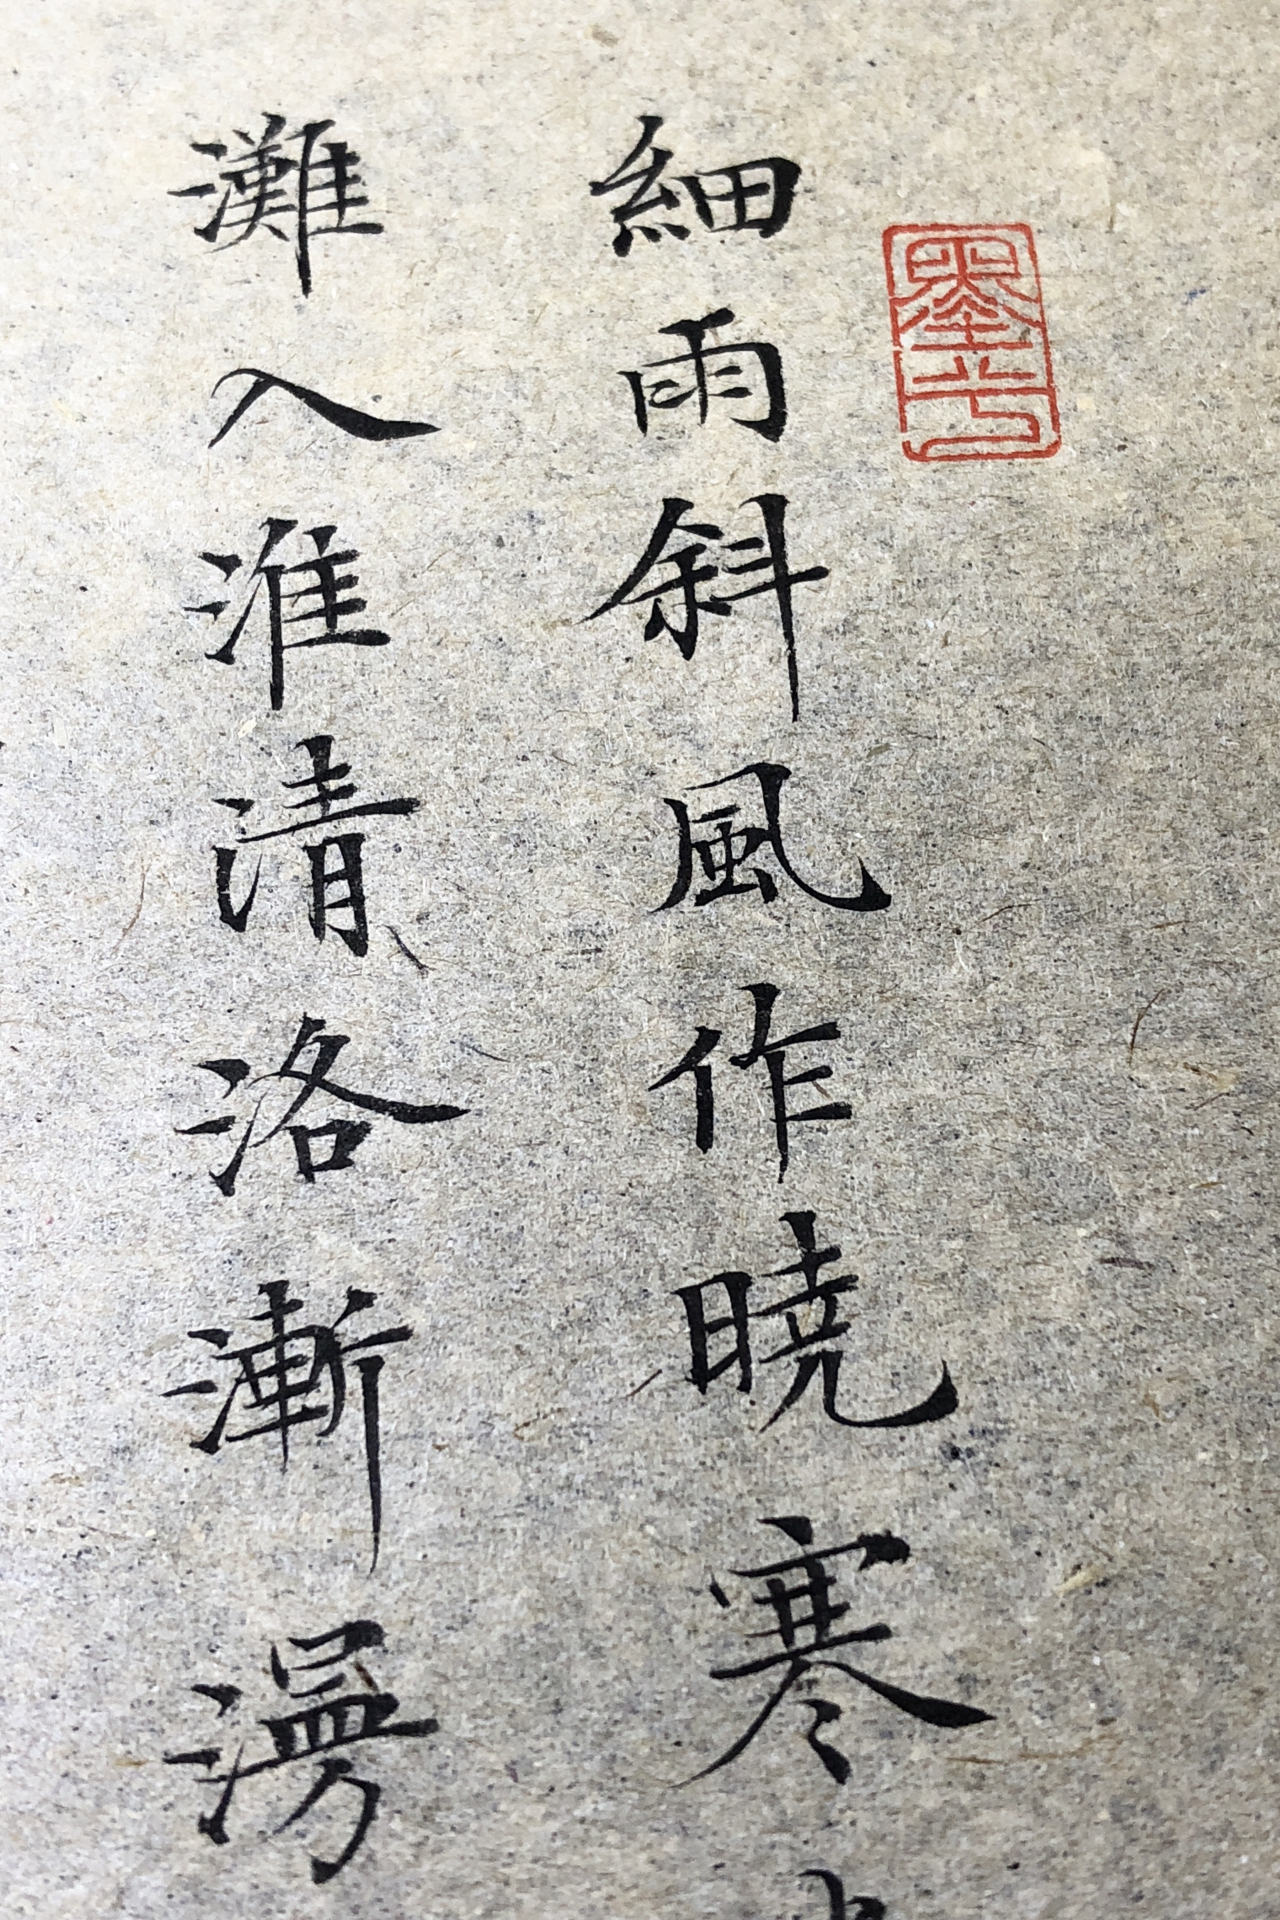 細雨斜風作曉寒
灘入淮清洛漸漫